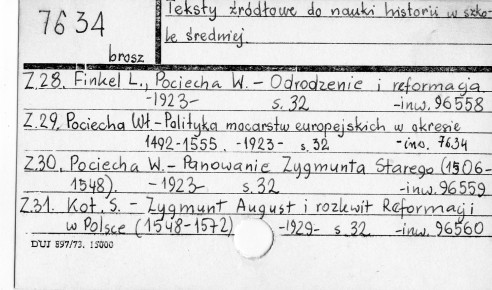 Teksty źródłowe do nauki historii w szko-
7634
le średniej
brosz
Z.28. Finkel L., Pociecha W. - Odrodzenie i reformacja
-1923- s. 32 -inw. 96558
Z.29. Pociecha Wł - Polityka mocarstw europejskich w okresie
1492-1555. -1923- s. 32 -inw. 7634
Z.30. Pociecha W. - Panowanie Zygmunta Starego (1506-
1548). -1923- s. 32 -inw. 96559
Z.31. Kot. S. - Zygmunt August i rozkwit Reformacji
w Polsce (1548-1572) -1929- s. 32 -inw. 96560
DUJ 897/73. 15000